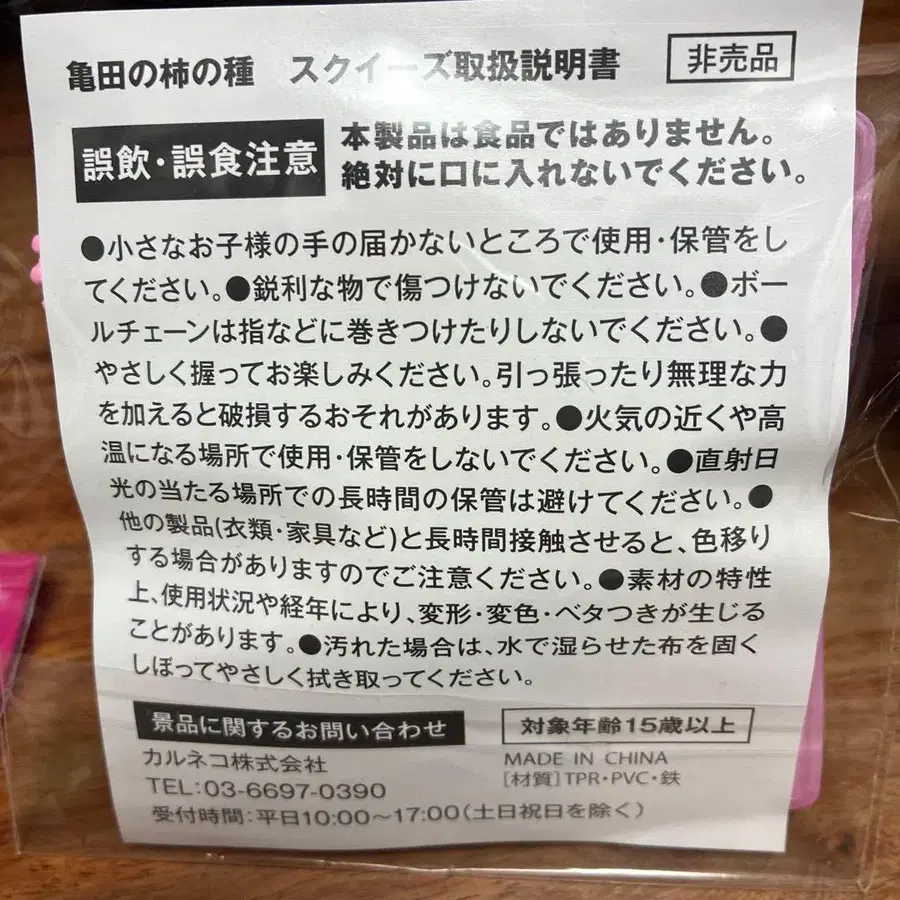 亀田の柿の種 スクイーズ取扱説明書
非売品
誤飲・誤食注意
本製品は食品ではありません。
絶対に口に入れないでください。
●小さなお子様の手の届かないところで使用・保管をし
てください。●鋭利な物で傷つけないでください。●ボー
ルチェーンは指などに巻きつけたりしないでください。●
やさしく握ってお楽しみください。引っ張ったり無理な力
を加えると破損するおそれがあります。●火気の近くや高
温になる場所で使用・保管をしないでください。●直射日
光の当たる場所での長時間の保管は避けてください。●
他の製品(衣類・家具など)と長時間接触させると、色移り
する場合がありますのでご注意ください。●素材の特性
上、使用状況や経年により、変形・変色・ベタつきが生じる
ことがあります。●汚れた場合は、水で湿らせた布を固く
しぼってやさしく拭き取ってください。
景品に関するお問い合わせ
カルネコ株式会社
TEL:03-6697-0390
受付時間:平日10:00〜17:00(土日祝日を除く)
対象年齢15歳以上
MADE IN CHINA
[材質]TPR・PVC・鉄